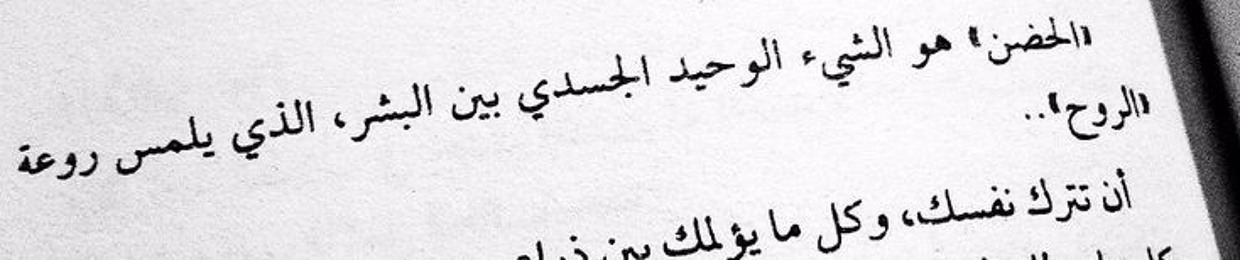 «الحضن» هو الشيء الوحيد الجسدي بين البشر، الذي يلمس روعة
«الروح»..
أن تترك نفسك، وكل ما يؤلمك بين